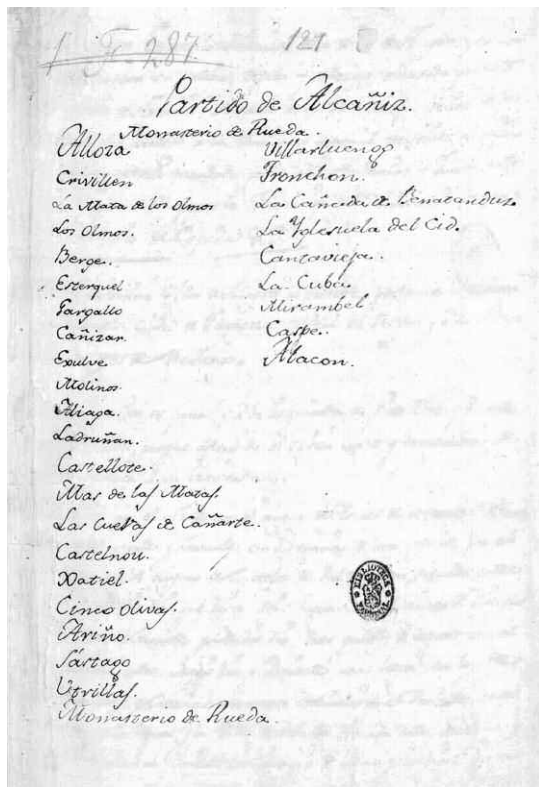 F. 287.
121
Partido de Alcañiz.
Monasterio de Rueda.
Alloza
Crivillen
La Mata de los Olmos
Los Olmos.
Berge.
Esterquel
Gargallo
Cañizar
Exulve
Molinos
Aliaga.
Ladruñan.
Castellote.
Mas de las Matas.
Las Cuevas de Cañarte.
Castelnou.
Xatiel.
Cinco Olivas.
Ariño.
Sástago
Utrillas.
Monasterio de Rueda.
Villarluengo
Tronchon.
La Cañada de Benatanduz.
La Yglesuela del Cid.
Cantavieja.
La Cuba.
Mirambel.
Caspe.
Alacon.
BIBLIOTECA